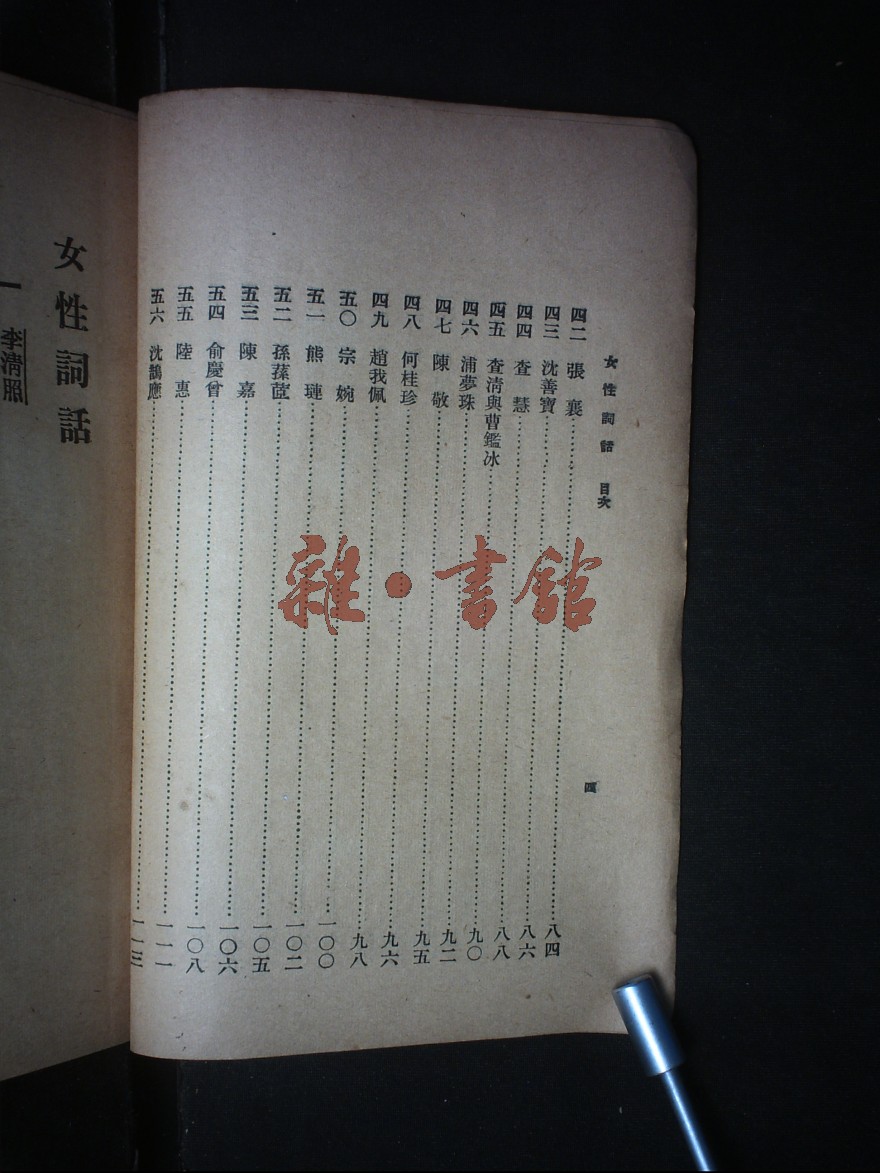 女性詞話 目次
四二 張襄……八四
四三 沈善寶……八六
四四 查慧……八八
四五 查清與曹鑑冰……九〇
四六 浦夢珠……九二
四七 陳敬……九五
四八 何桂珍……九六
四九 趙我佩……九八
五〇 宗婉……一〇〇
五一 熊璉……一〇二
五二 孫蓀……一〇五
五三 陳嘉……一〇六
五四 俞慶曾……一〇八
五五 陸惠……一一一
五六 沈鵲應……一一三
四
女性詞話
一 李清照
雜·書館